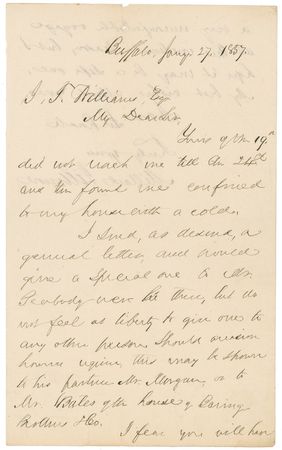 Buffalo, Jany 27. 1857.
J. T. Williams, Esq
My Dear Sir,
Yours of the 19th
did not reach me till the 24th
and then found me confined
to my house with a cold.
I send, as desired, a
general letter, and would
give a special one to Mr.
Peabody were he there, but do
not feel at liberty to give one to
any other person. Should occasion
however require, this may be shown
to his partner Mr. Morgan, or to
Mr. Bates of the house of Baring
Brothers & Co.
I fear you will have